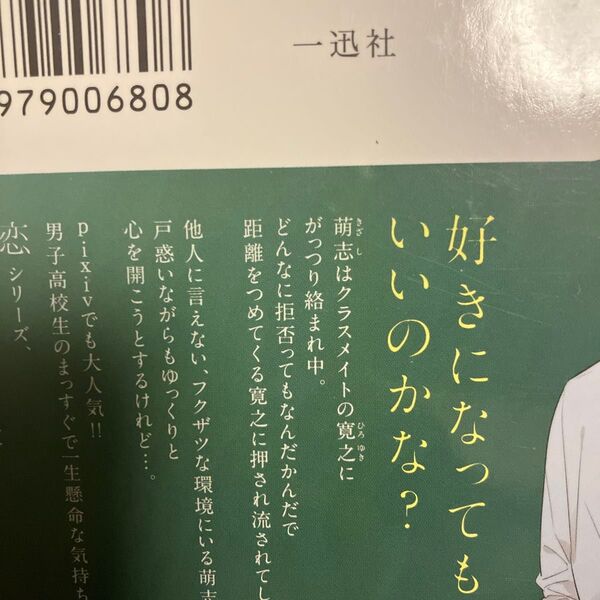 一迅社
979006808
好きになっても
いいのかな？
萌志はクラスメイトの寛之に
きざし
ひろゆき
がっつり絡まれ中。
どんなに拒否ってもなんだかんだで
距離をつめてくる寛之に押され流されてし
他人に言えない、フクザツな環境にいる萌志
戸惑いながらもゆっくりと
心を開こうとするけれど…。
pixivでも大人気!!
男子高校生のまっすぐで一生懸命な気持ち
恋シリーズ、